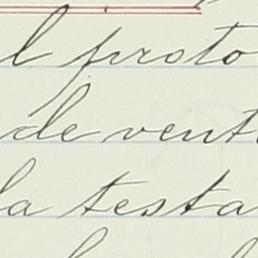 l proto
de vent
la testa